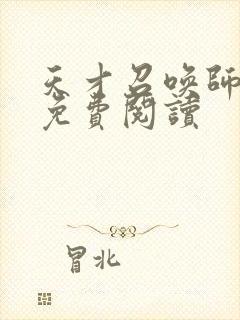 天才召喚師
免費閱讀
冒北